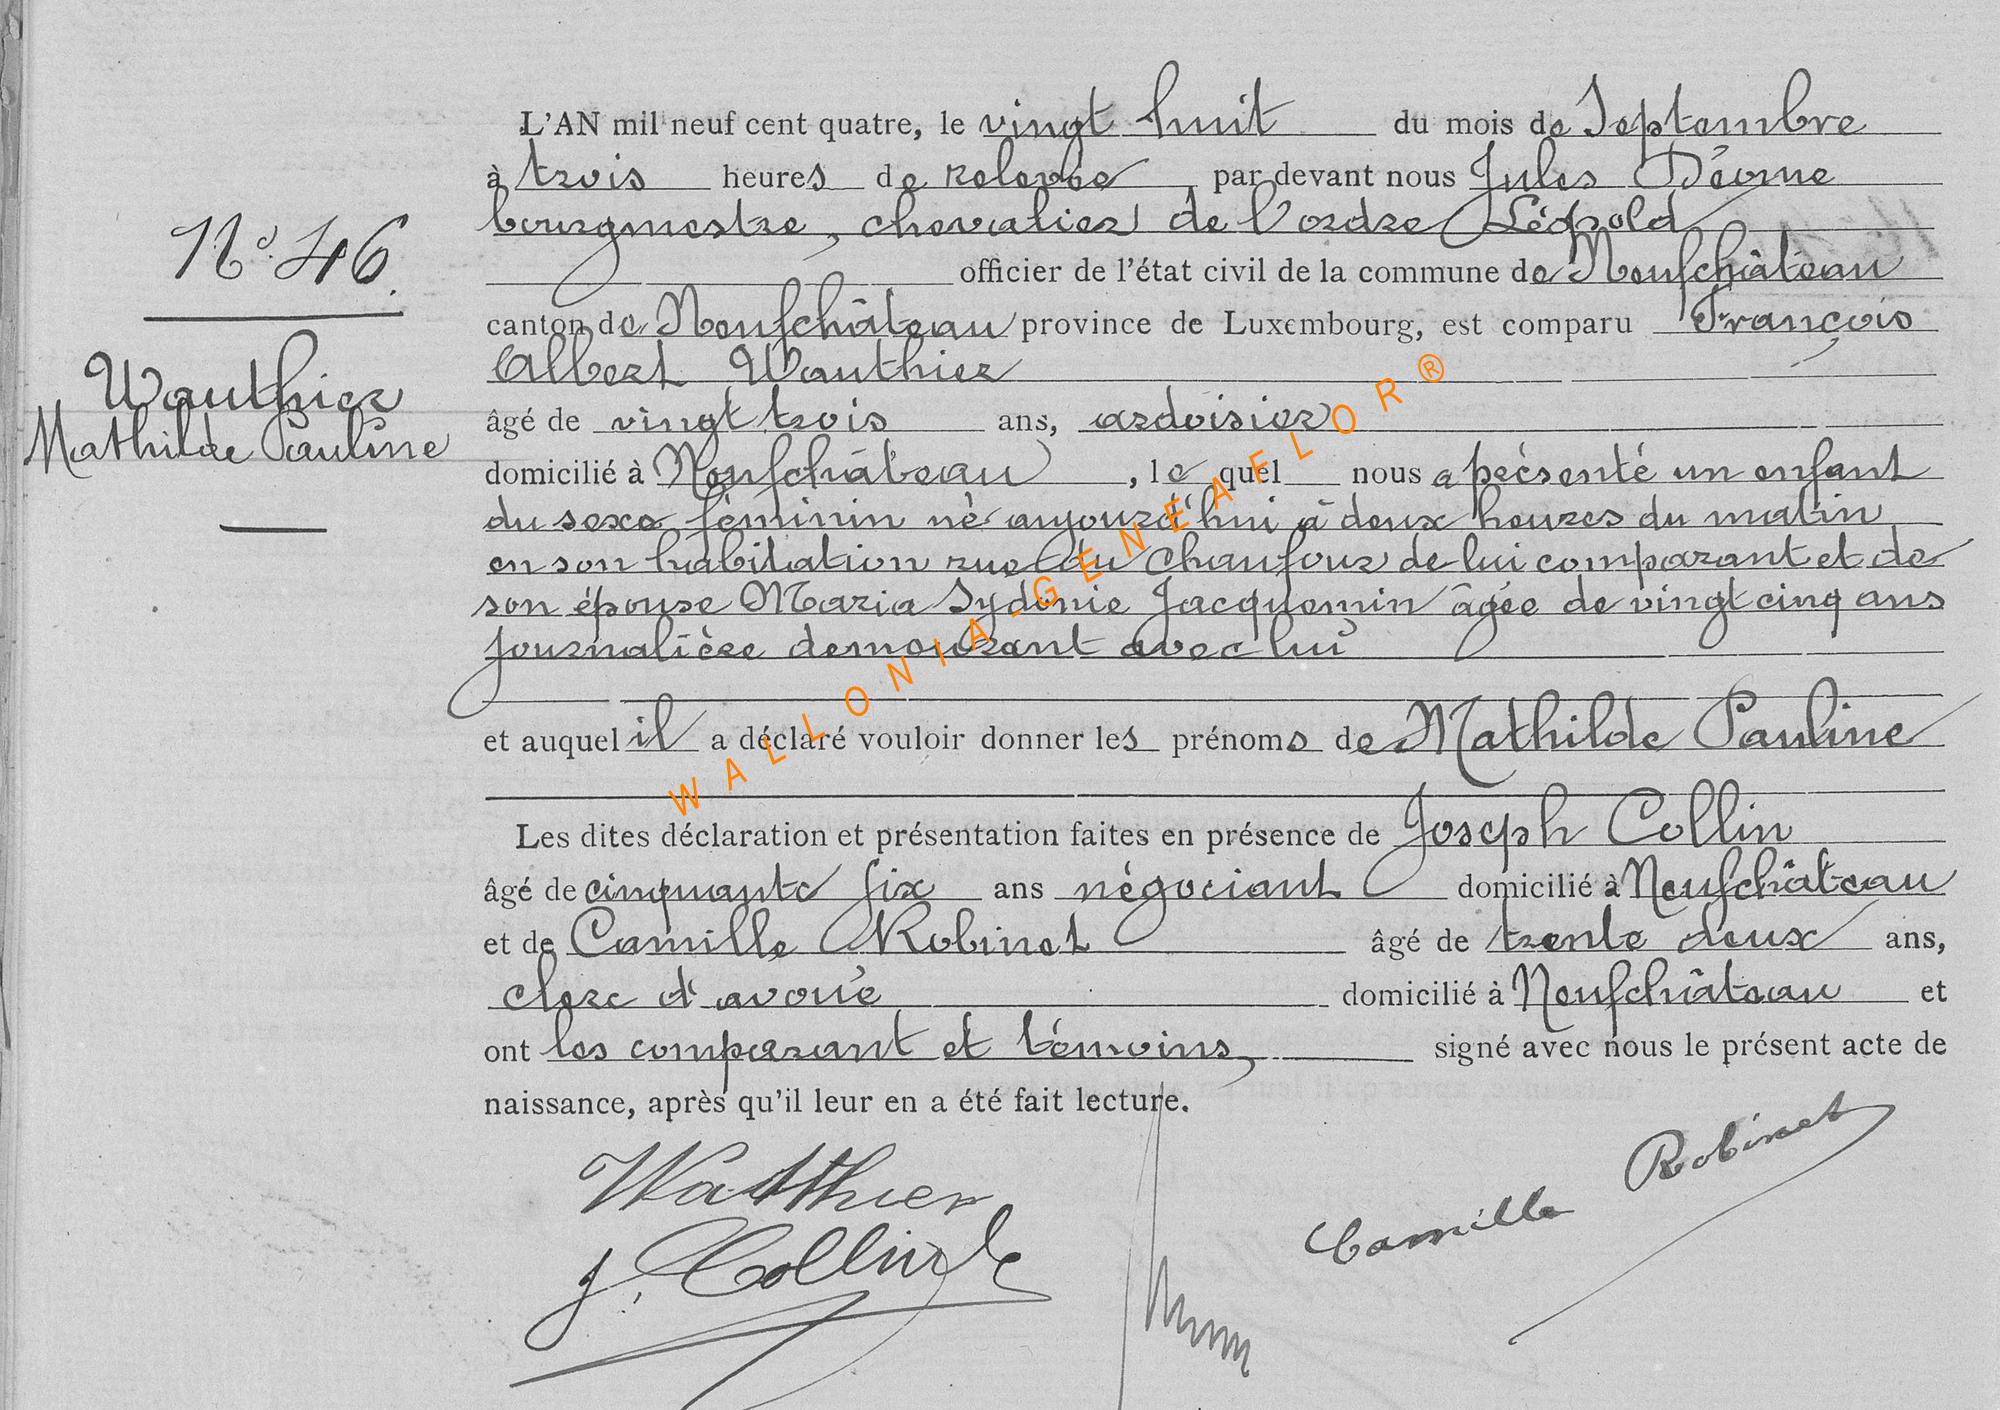 L'AN mil neuf cent quatre, le vingt huit du mois de Septembre
à trois heures de relevée, par devant nous Jules
bourgmestre, chevalier de l'ordre Léopold
officier de l'état civil de la commune de Neufchâteau
canton de Neufchâteau province de Luxembourg, est comparu François
Albert Wauthier
âgé de vingt trois ans, ardoisier
domicilié à Neufchâteau, le quel nous a présenté un enfant
du sexe féminin né aujourd'hui à deux heures du matin
en son habitation rue du Chaufour de lui comparant et de
son épouse Maria Sydonie Jacquemin âgée de vingt cinq ans
journalière demeurant avec lui
et auquel il a déclaré vouloir donner les prénoms de Mathilde Pauline
Les dites déclaration et présentation faites en présence de Joseph Collin
âgé de cinquante six ans négociant domicilié à Neufchâteau
et de Camille Robinet âgé de trente deux ans,
clerc d'avoué domicilié à Neufchâteau et
ont les comparant et témoins, signé avec nous le présent acte de
naissance, après qu'il leur en a été fait lecture.
No. 46.
Wauthier
Mathilde Pauline
Watthier
J. Collin
Camille Robinet
WALLONIA-GENEAFLOR®